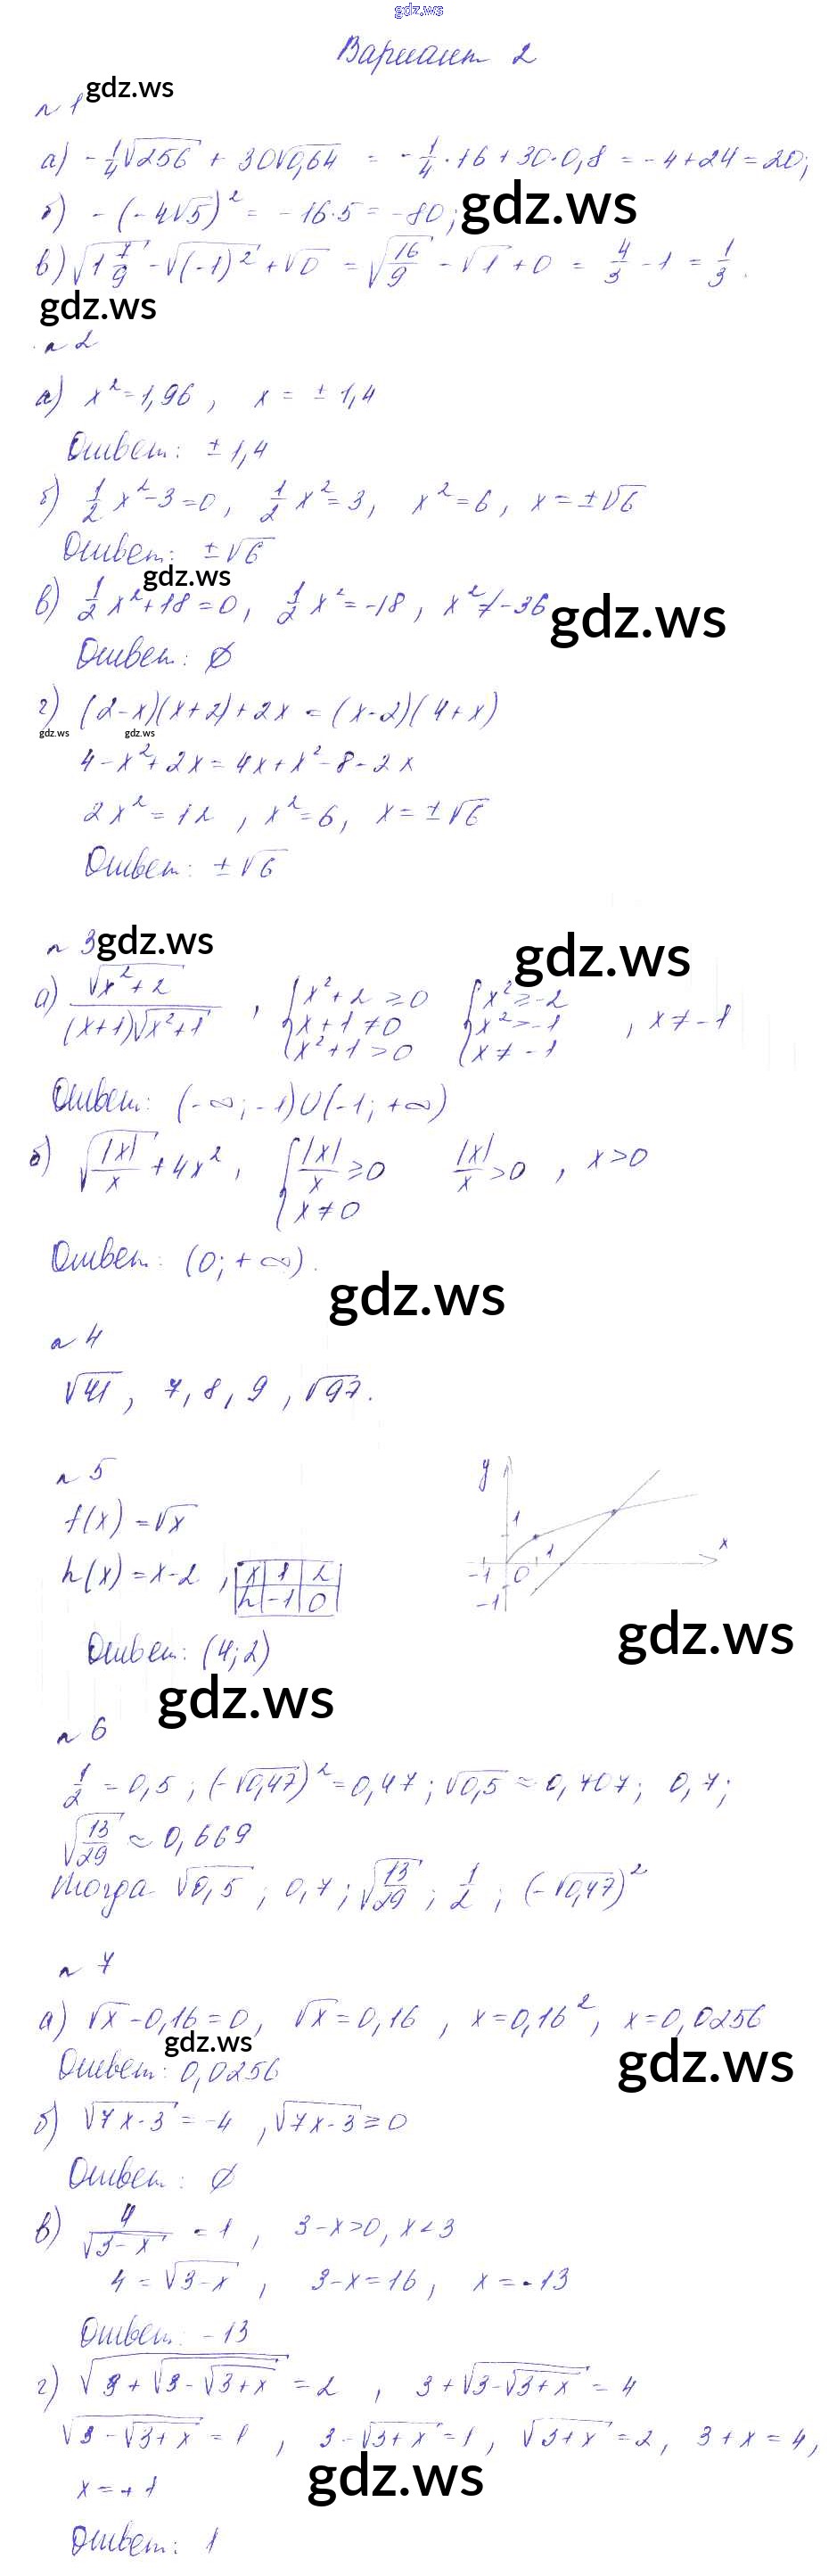 gdz.ws
Вариант 2
gdz.ws
n 1
а) -1/4√256 + 30√0,64 = -1/4·16+30·0,8 = -4+24=20;
б) -(-4√5)² = -16·5 = -80;
gdz.ws
в) √(1 7/9) - √(-1)² + √0 = √(16/9) - √1 + 0 = 4/3 - 1 = 1/3.
gdz.ws
n 2
а) x²=1,96, x = ±1,4
Ответ: ±1,4
б) 1/2 x²-3=0, 1/2 x²=3, x²=6, x=±√6
Ответ: ±√6
gdz.ws
в) 1/2 x²+18=0, 1/2 x²=-18, x²≠-36
gdz.ws
Ответ: ∅
г) (2-x)(x+2)+2x = (x-2)(4+x)
gdz.ws gdz.ws
4-x²+2x=4x+x²-8-2x
2x²=12, x²=6, x=±√6
Ответ: ±√6
n 3
gdz.ws
gdz.ws
а) √(x²+2) / ((x+1)√(x²+1)), { x²+2≥0 x+1≠0 x²+1>0 { x²≥-2 x²>-1 x≠-1, x≠-1
Ответ: (-∞;-1)∪(-1;+∞)
б) √(|x|/x) + 4x², { |x|/x ≥0 x≠0 |x|/x >0, x>0
Ответ: (0;+∞).
gdz.ws
n 4
√41, 7, 8, 9, √97.
n 5
y
f(x)=√x
1
x
h(x)=x-2, x 1 2
h -1 0
-1 0 1
-1
gdz.ws
Ответ: (4;2)
gdz.ws
n 6
1/2 = 0,5; (-√0,47)²=0,47; √0,5≈0,707; 0,7;
√(13/29) ≈ 0,669
Тогда √0,5; 0,7; √(13/29); 1/2; (-√0,47)²
n 7
а) √x-0,16=0, √x=0,16, x=0,16², x=0,0256
gdz.ws
gdz.ws
Ответ: 0,0256
б) √(7x-3) = -4, √(7x-3) ≥0
Ответ: ∅
в) 4/√(3-x) = 1, 3-x>0, x<3
4=√(3-x), 3-x=16, x=-13
Ответ: -13
г) √(3+√(3-√(3+x))) = 2, 3+√(3-√(3+x)) = 4
√(3-√(3+x)) = 1, 3-√(3+x)=1, √(3+x)=2, 3+x=4,
gdz.ws
x=+1
Ответ: 1